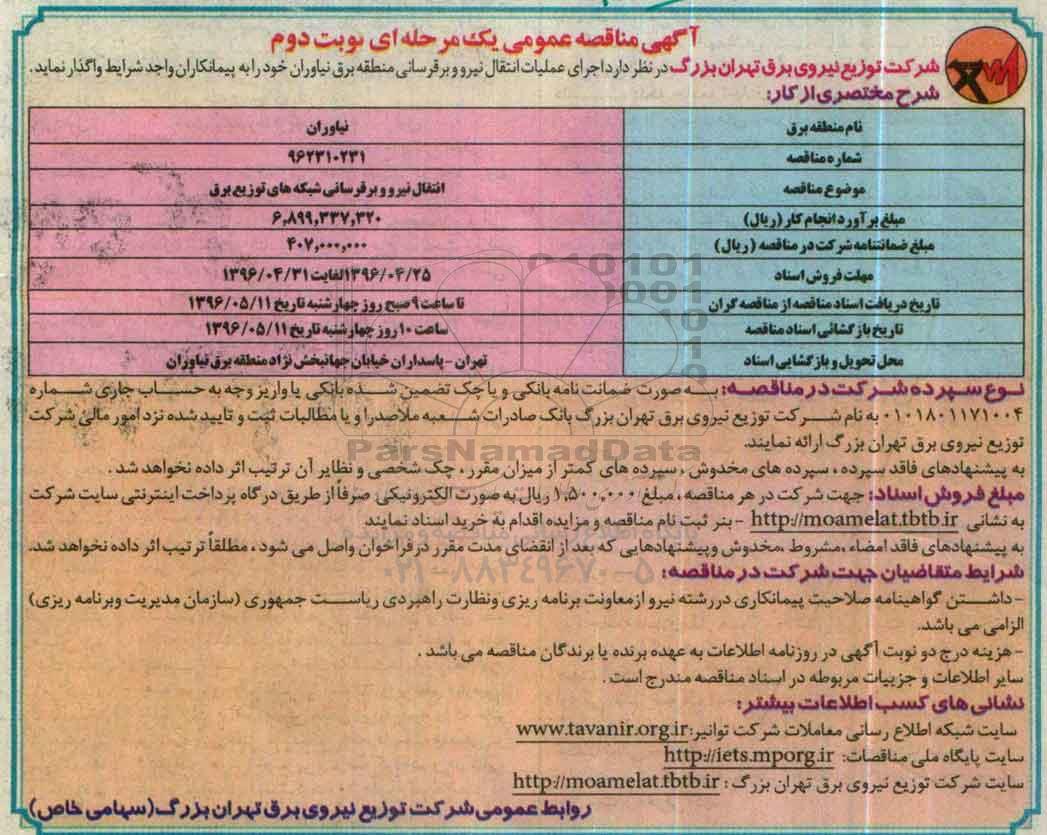 آگهی مناقصه عمومی یک مرحله ای نوبت دوم
شرکت توزیع نیروی برق تهران بزرگ در نظر دارد اجرای عملیات انتقال نیرو و برقرسانی منطقه برق نیاوران خود را به پیمانکاران واجد شرایط واگذار نماید.
شرح مختصری از کار:
نام منطقه برق نیاوران
شماره مناقصه ۹۶۲۳۱۰۲۳۱
موضوع مناقصه انتقال نیرو و برقرسانی شبکه های توزیع برق
مبلغ برآورد انجام کار (ریال) ۶,۸۹۹,۳۳۷,۳۲۰
مبلغ ضمانتنامه شرکت در مناقصه (ریال) ۴۰۷,۰۰۰,۰۰۰
مهلت فروش اسناد ۱۳۹۶/۰۴/۲۵ لغایت ۱۳۹۶/۰۴/۳۱
تاریخ دریافت اسناد مناقصه از مناقصه گران تا ساعت ۹ صبح روز چهارشنبه تاریخ ۱۳۹۶/۰۵/۱۱
تاریخ بازگشائی اسناد مناقصه ساعت ۱۰ روز چهارشنبه تاریخ ۱۳۹۶/۰۵/۱۱
محل تحویل و بازگشایی اسناد تهران - پاسداران خیابان جهانبخش نژاد منطقه برق نیاوران
نوع سپرده شرکت در مناقصه: به صورت ضمانت نامه بانکی و یا چک تضمین شده بانکی یا واریز وجه به حساب جاری شماره
۰۱۰۱۸۰۱۱۷۱۰۰۴ به نام شرکت توزیع نیروی برق تهران بزرگ بانک صادرات شعبه ملاصدرا و یا مطالبات ثبت و تایید شده نزد امور مالی شرکت
توزیع نیروی برق تهران بزرگ ارائه نمایند.
به پیشنهادهای فاقد سپرده ، سپرده های مخدوش ، سپرده های کمتر از میزان مقرر ، چک شخصی و نظایر آن ترتیب اثر داده نخواهد شد .
مبلغ فروش اسناد: جهت شرکت در هر مناقصه ، مبلغ ۱,۵۰۰,۰۰۰ ریال به صورت الکترونیکی صرفاً از طریق درگاه پرداخت اینترنتی سایت شرکت
به نشانی http://moamelat.tbtb.ir - بنر ثبت نام مناقصه و مزایده اقدام به خرید اسناد نمایند
به پیشنهادهای فاقد امضاء ،مشروط ،مخدوش وپیشنهادهایی که بعد از انقضای مدت مقرر در فراخوان واصل می شود ، مطلقاً ترتیب اثر داده نخواهد شد.
شرایط متقاضیان جهت شرکت در مناقصه:
- داشتن گواهینامه صلاحیت پیمانکاری در رشته نیرو از معاونت برنامه ریزی ونظارت راهبردی ریاست جمهوری (سازمان مدیریت وبرنامه ریزی)
الزامی می باشد.
- هزینه درج دو نوبت آگهی در روزنامه اطلاعات به عهده برنده یا برندگان مناقصه می باشد .
سایر اطلاعات و جزییات مربوطه در اسناد مناقصه مندرج است .
نشانی های کسب اطلاعات بیشتر:
سایت شبکه اطلاع رسانی معاملات شرکت توانیر: www.tavanir.org.ir
سایت پایگاه ملی مناقصات: http://iets.mporg.ir
سایت شرکت توزیع نیروی برق تهران بزرگ : http://moamelat.tbtb.ir
روابط عمومی شرکت توزیع نیروی برق تهران بزرگ (سهامی خاص)
ParsNamadData
۰۲۱-۸۸۳۴۹۶۷۰-۵